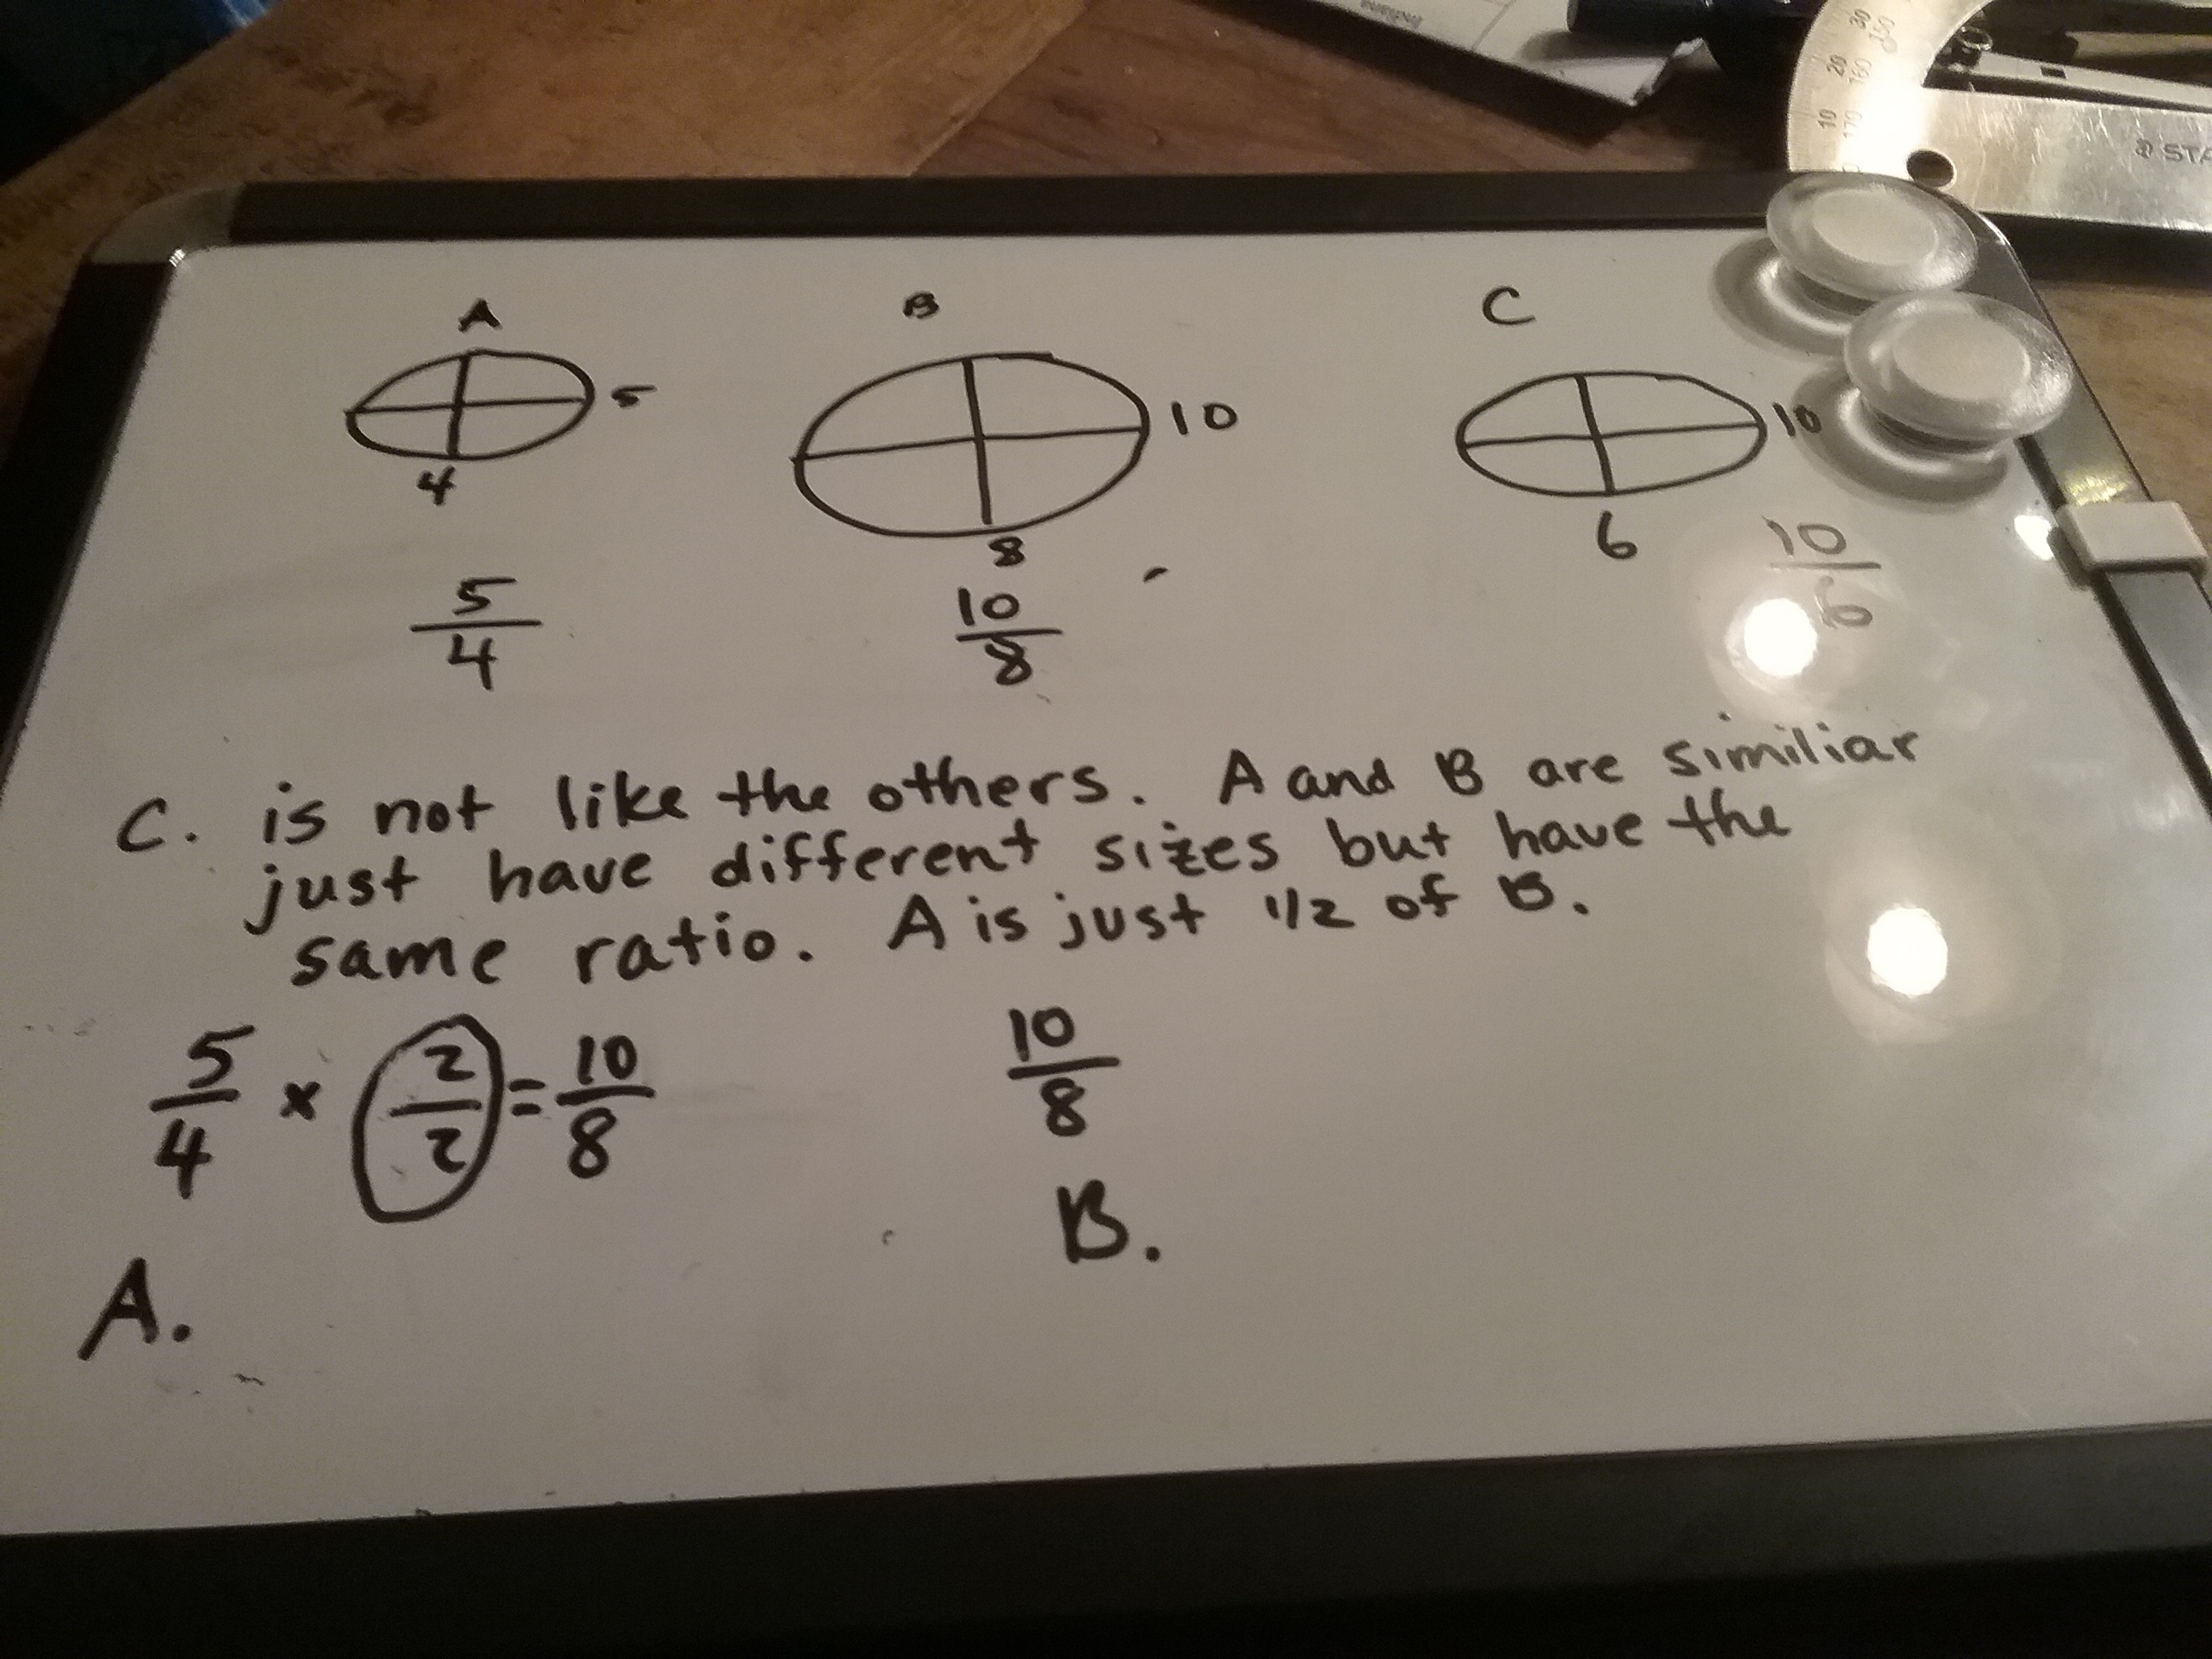 30 150
20 160
10 170
STA
A B C
5 10 10
4 8 6
5/4 10/8 10/6
C. is not like the others. A and B are similiar
just have different sizes but have the
same ratio. A is just 1/2 of B.
5/4 × 2/2 = 10/8 10/8
B.
A.